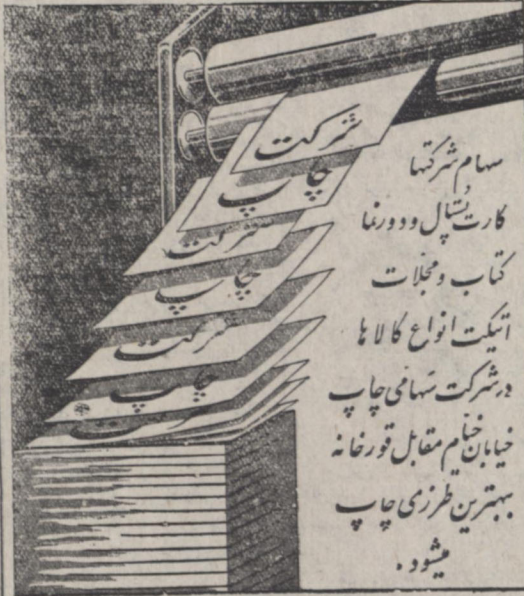 شرکت
چاپ
شرکت
چاپ
شرکت
چاپ
شرکت
سهام شرکتها
کارت پستال و دورنما
کتاب و مجلات
اتیکت انواع کالاها
در شرکت سهامی چاپ
خیابان خیام مقابل قورخانه
بهترین طرزی چاپ
میشود.